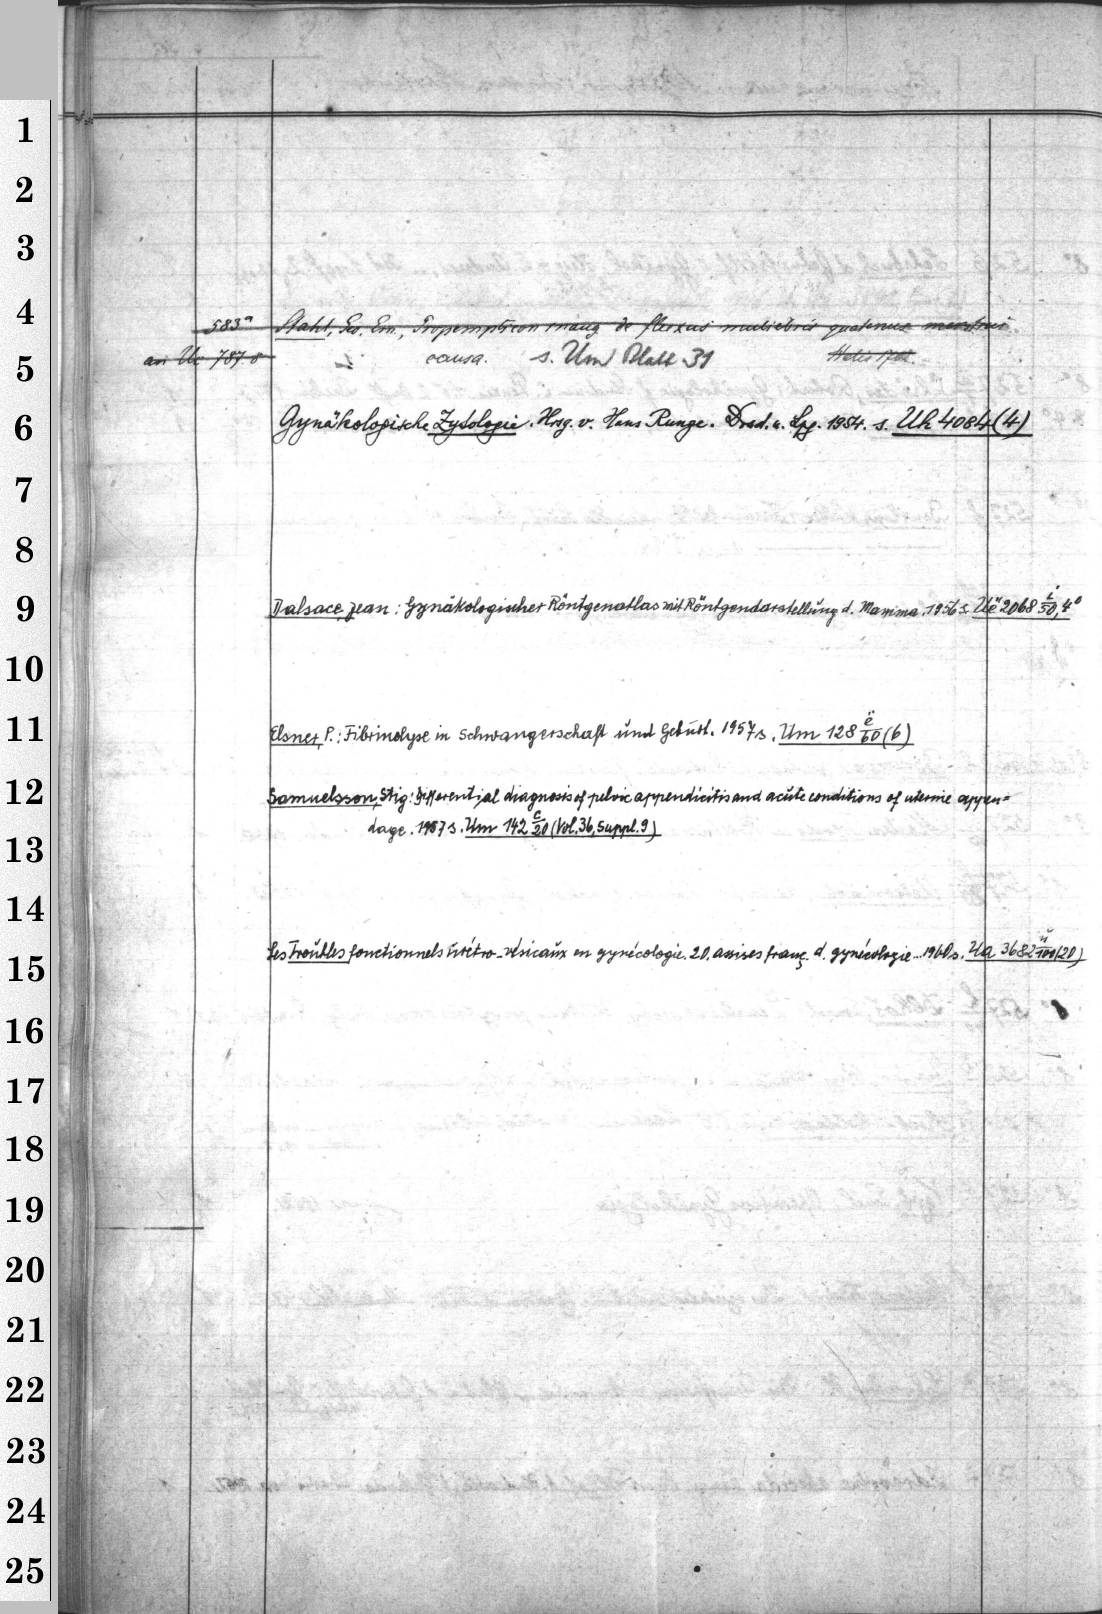 1
2
3
4
583ᵃ Stahl, Geo. Em., Propempticon inaug. de fluxus muliebris quatenus menstrui
5
an Uc 787.8 causa. s. Um Blatt 31
6
Gynäkologische Zytologie. Hrsg. v. Hans Runge. Dresd. u. Lpz. 1954. s. Uh 4084 (4)
7
8
9
Dalsace, Jean: Gynäkologischer Röntgenatlas mit Röntgendarstellung d. Mamma. 1956 s. Uë 2068 i/50, 4°
10
11
Elsner, P.: Fibrinolyse in Schwangerschaft und Geburt. 1957 s. Um 128 ë/60 (6)
12
Samuelsson, Stig: Differential diagnosis of pelvic appendicitis and acute conditions of uterine appen=
dage. 1957 s. Um 142 c/20 (Vol. 36, Suppl. 9)
13
14
15
Les Troubles fonctionnels urétro-vésicaux en gynécologie. 20. assises franç. d. gynécologie... 1960 s. Ua 3682 ü/100 (20)
16
17
18
19
20
21
22
23
24
25